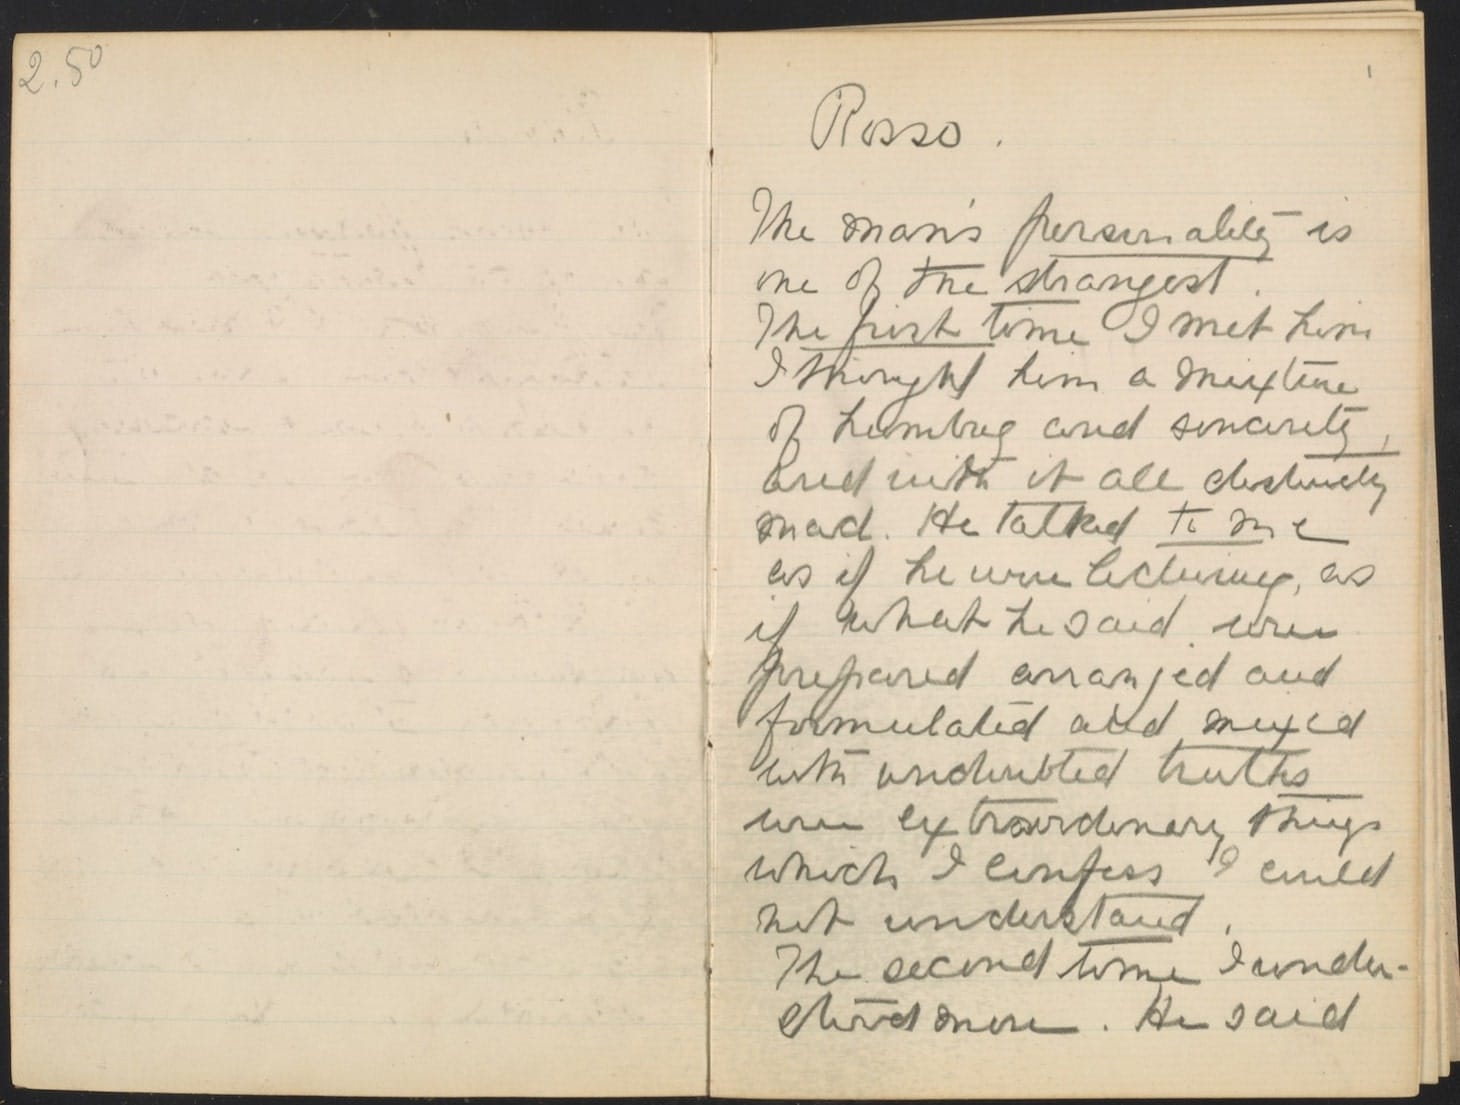 2.50
1
Rosso.
The man's personality is
one of the strangest.
The first time I met him
I thought him a mixture
of humbug and sincerity,
and with it all distinctly
mad. He talked to me
as if he were lecturing, as
if what he said were
prepared arranged and
formulated and mixed
with undoubted truths
were extraordinary things
which I confess I could
not understand.
The second time I under-
stood more. He said